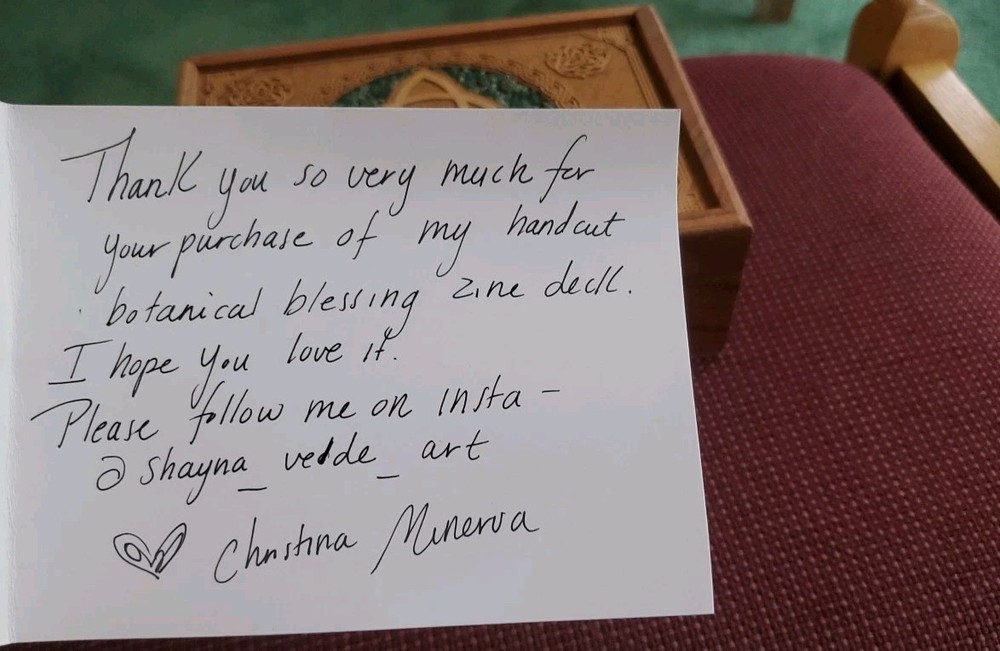 Thank you so very much for
your purchase of my handcut
botanical blessing zine deck.
I hope you love it.
Please follow me on insta -
@shayna_velde_art
Christina Minerva